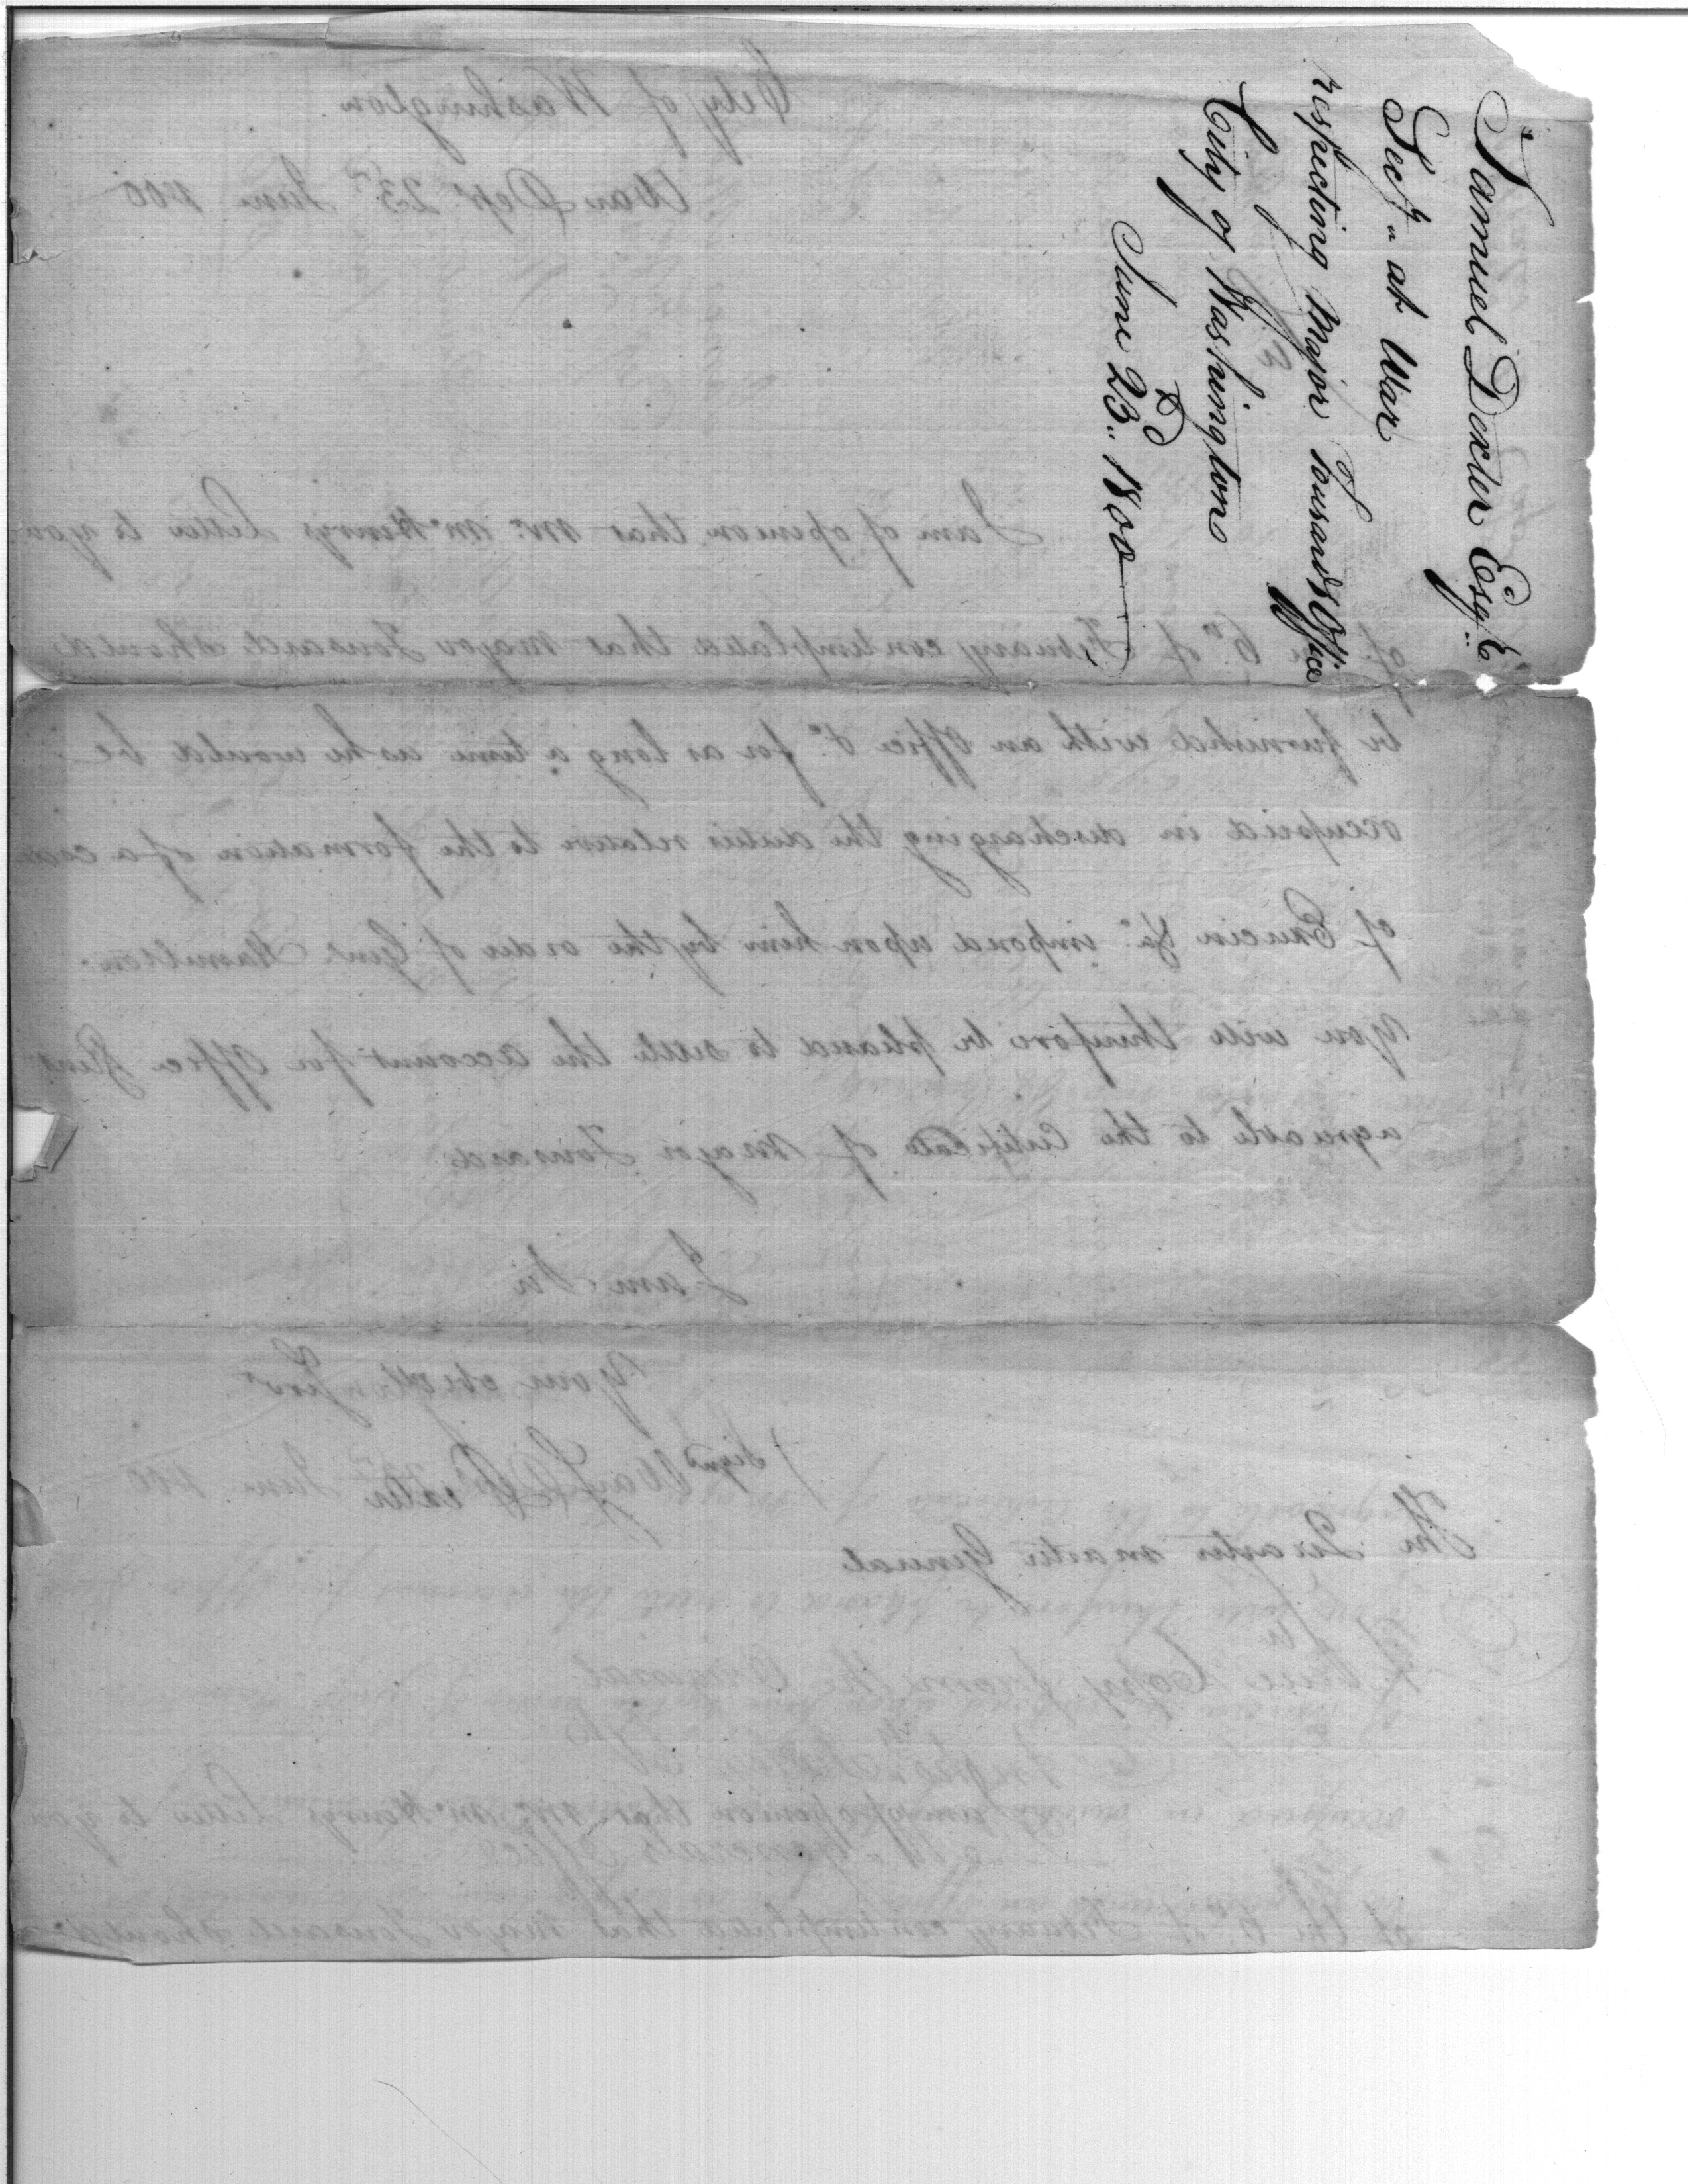 Samuel Dexter Esqr.
Secy. at War
respecting Major Tousards Office
City of Washington
June 23d. 1800
City of Washington
War Dept. 23d June 1800
Sir
I am of opinion that Mr. McHenrys Letter to you
of the 6th. of Febuary contemplated that Major Tousard should
be furnished with an Office &c. for as long a time as he would be
occupied in discharging the duties relative to the formation of a code
of Exercise &c. imposed upon him by the order of Genl. Hamilton.
You will therefore be pleased to settle the account for Office Rent
agreeable to the Certificate of Major Tousard
I am Sir
Your obedt Servt
Signd
Dexter
The Quarter Master General
True Copy from the Original
Office